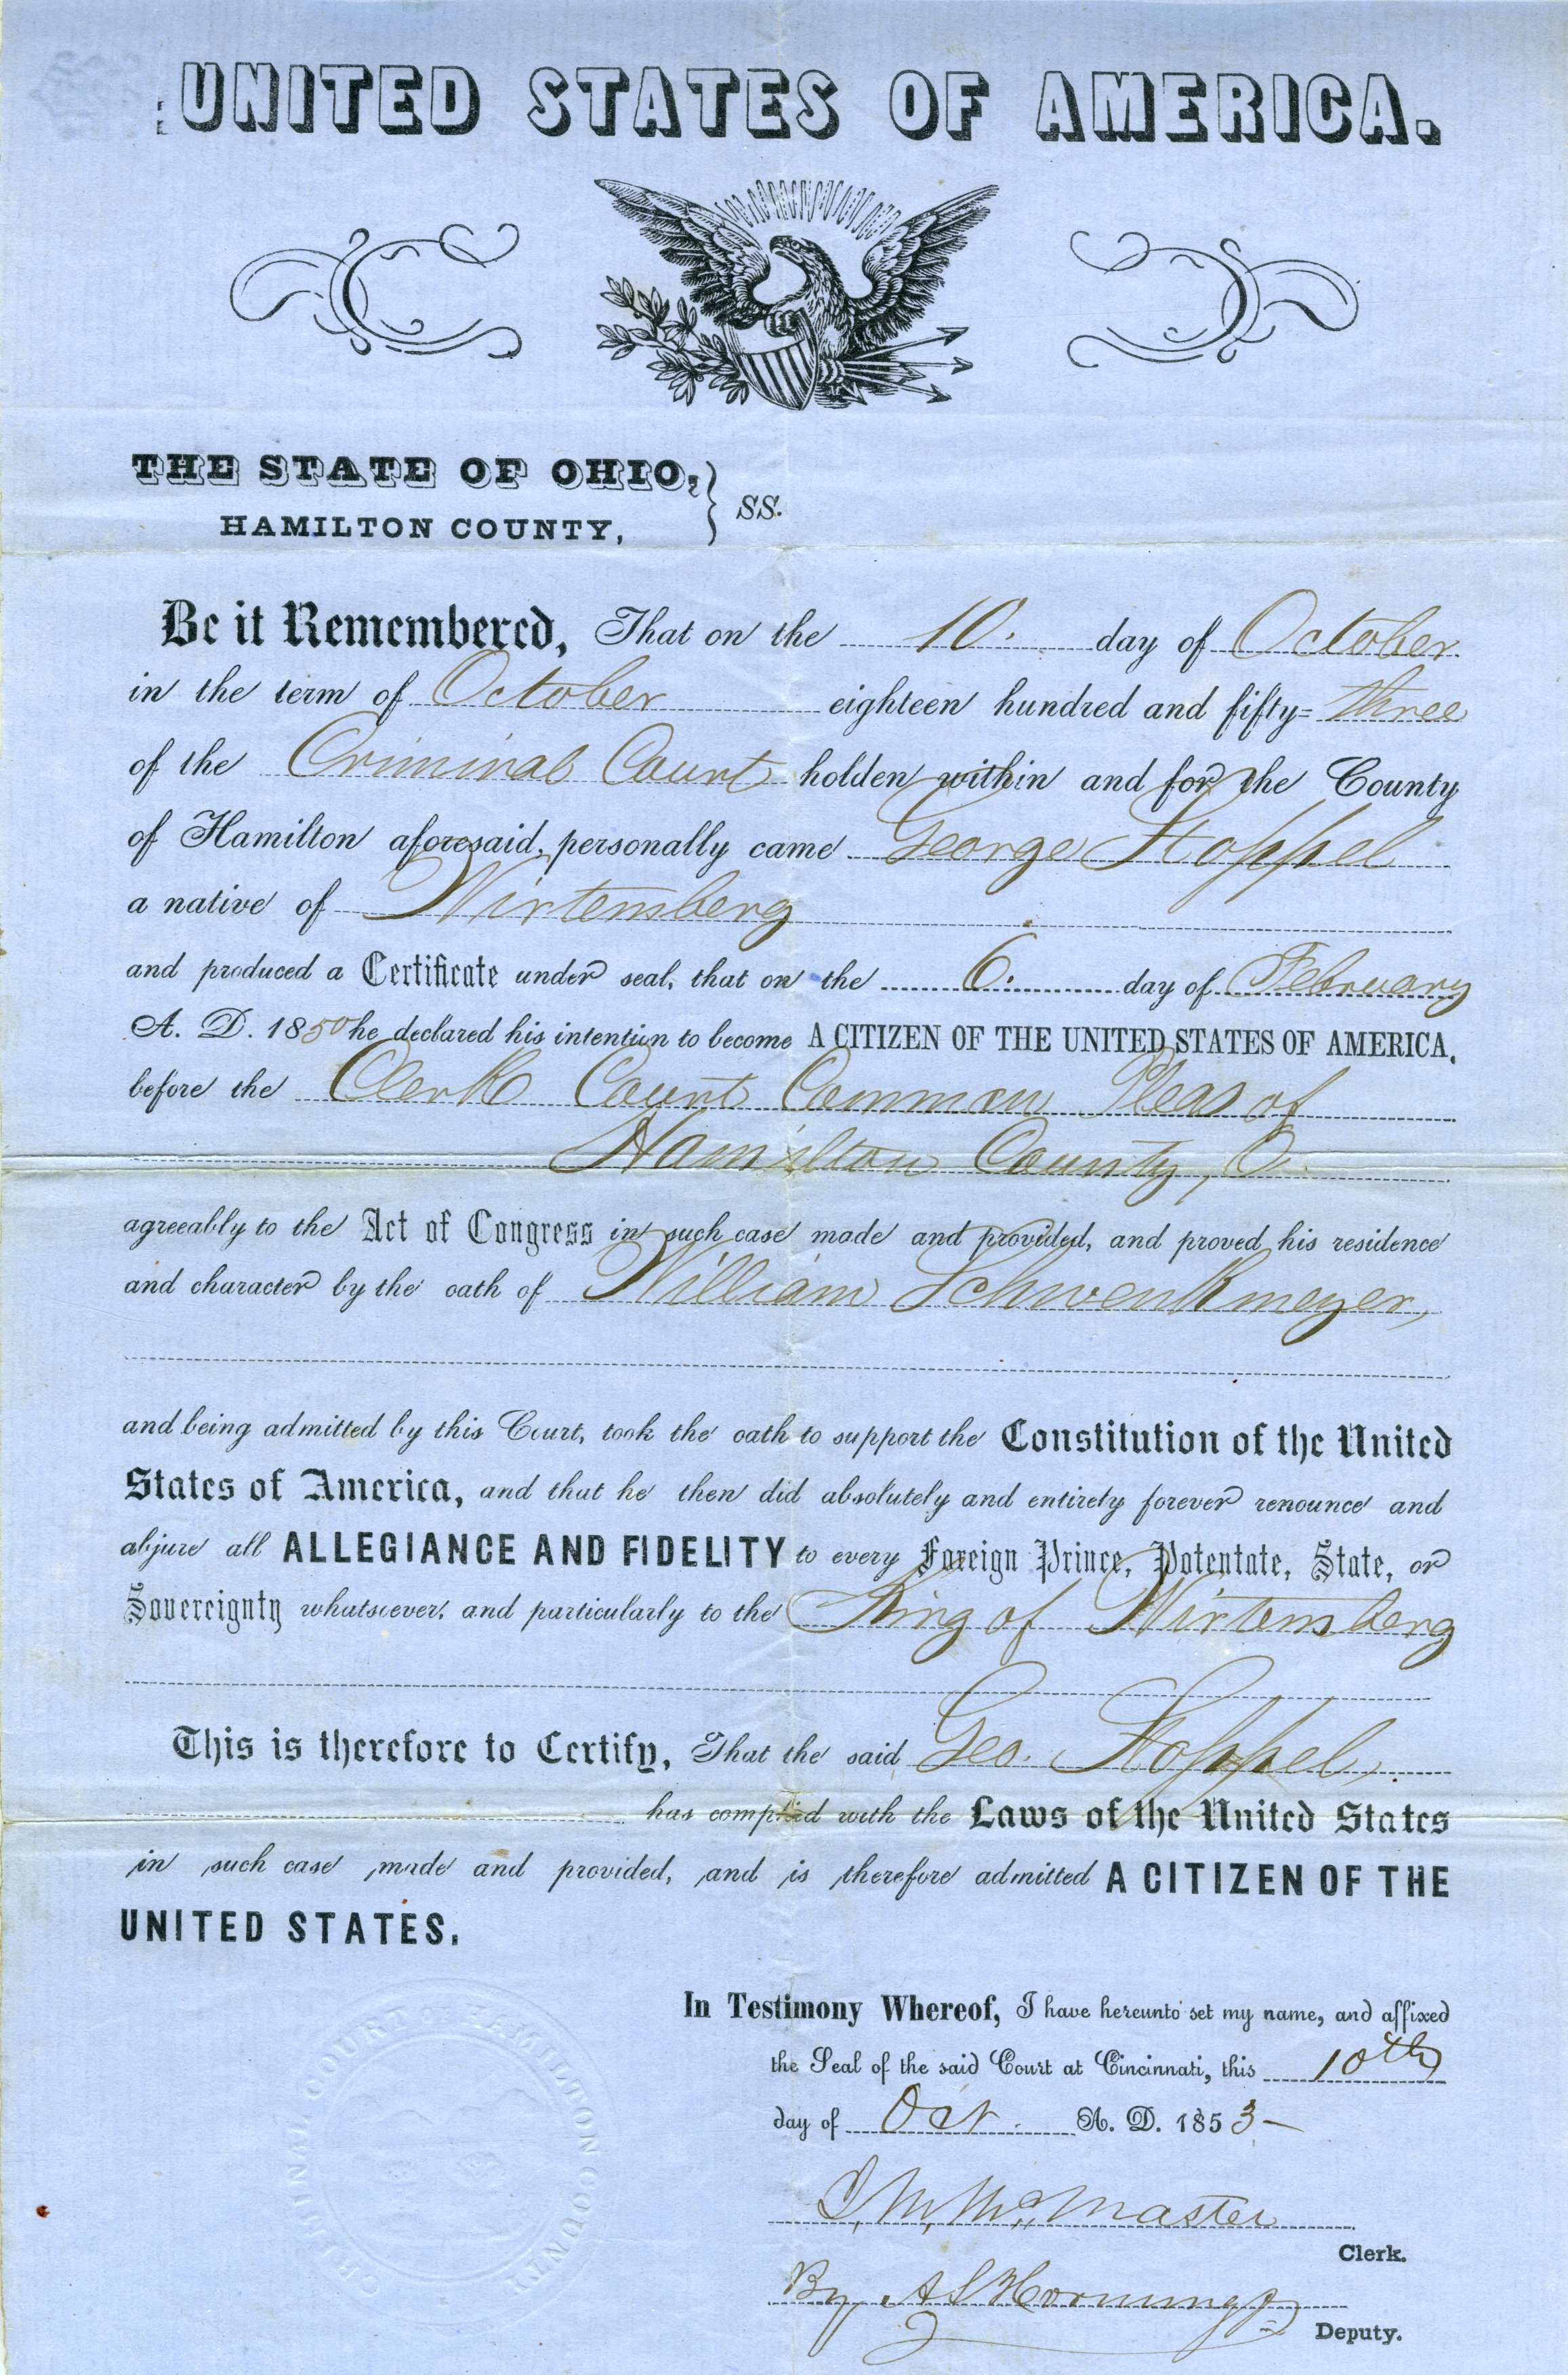 UNITED STATES OF AMERICA.
THE STATE OF OHIO,
HAMILTON COUNTY,
SS.
Be it Remembered, That on the 10. day of October
in the term of October eighteen hundred and fifty=three
of the Criminal Court holden within and for the County
of Hamilton aforesaid, personally came George Stoppel
a native of Wirtemberg
and produced a Certificate under seal, that on the 6. day of February
A. D. 1850 he declared his intention to become A CITIZEN OF THE UNITED STATES OF AMERICA,
before the Clerk Court Common Pleas of
Hamilton County, O.
agreeably to the Act of Congress in such case made and provided, and proved his residence
and character by the oath of William Schwenkmeyer,
and being admitted by this Court, took the oath to support the Constitution of the United
States of America, and that he then did absolutely and entirely forever renounce and
abjure all ALLEGIANCE AND FIDELITY to every Foreign Prince, Potentate, State, or
Sovereignty whatsoever, and particularly to the King of Wirtemberg
This is therefore to Certify, That the said Geo. Stoppel,
has complied with the Laws of the United States
in such case made and provided, and is therefore admitted A CITIZEN OF THE
UNITED STATES.
In Testimony Whereof, I have hereunto set my name, and affixed
the Seal of the said Court at Cincinnati, this 10th
day of Oct. A. D. 1853-
McMaster
Clerk.
By
Deputy.
CRIMINAL COURT OF HAMILTON COUNTY